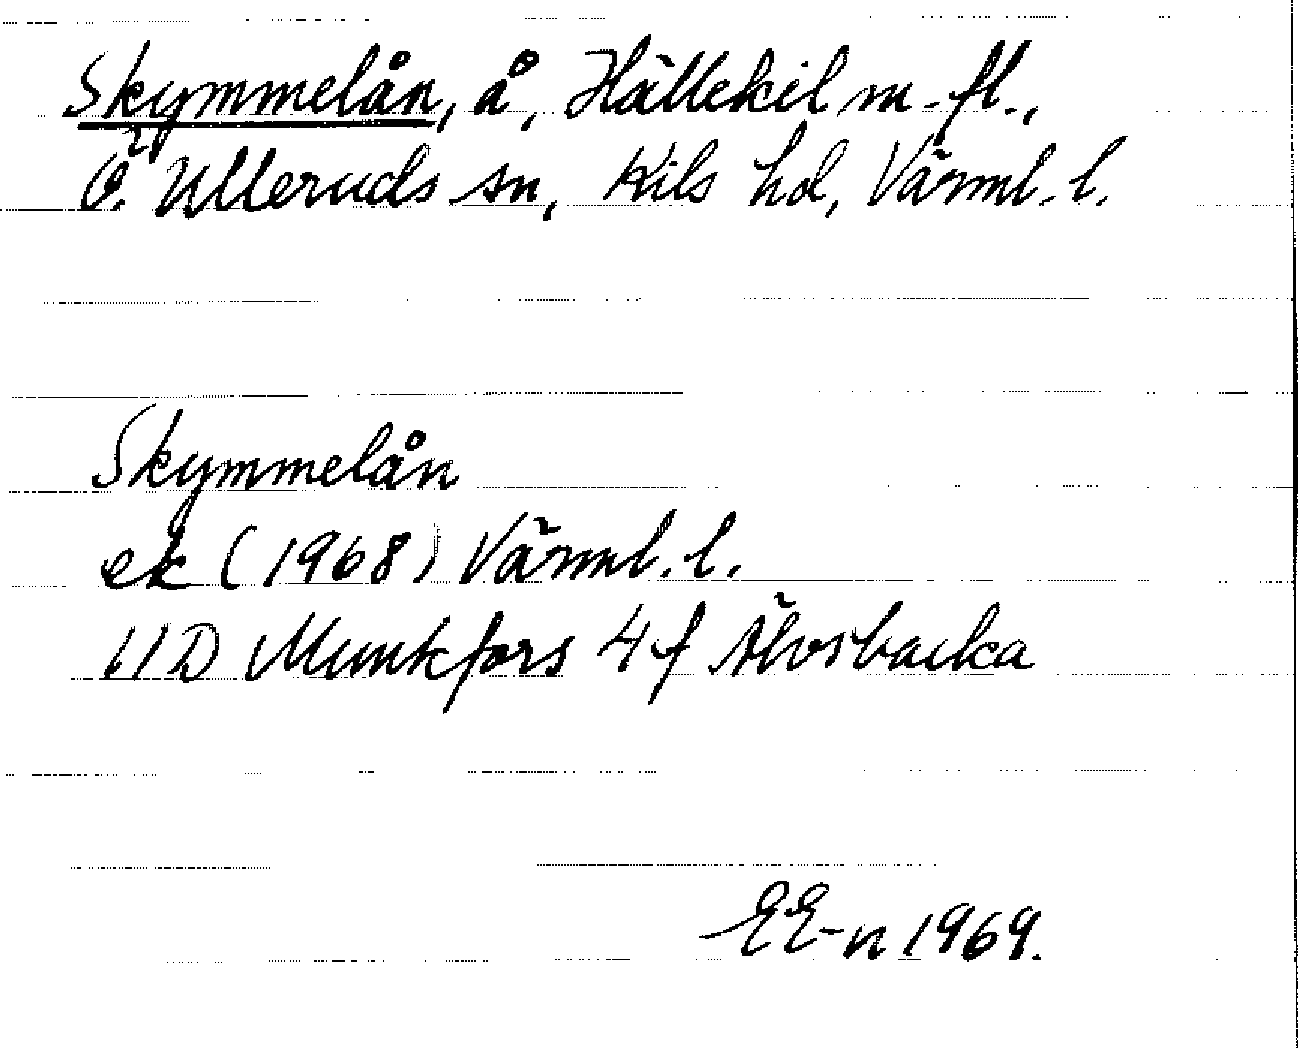 Skymmelån, å, Hällekil m. fl.,
Ö. Ulleruds sn, Kils hd, Värml. l.
Skymmelån
ek (1968) Värml. l.
11D Munkfors 4f Älvsbacka
EE-n 1969.